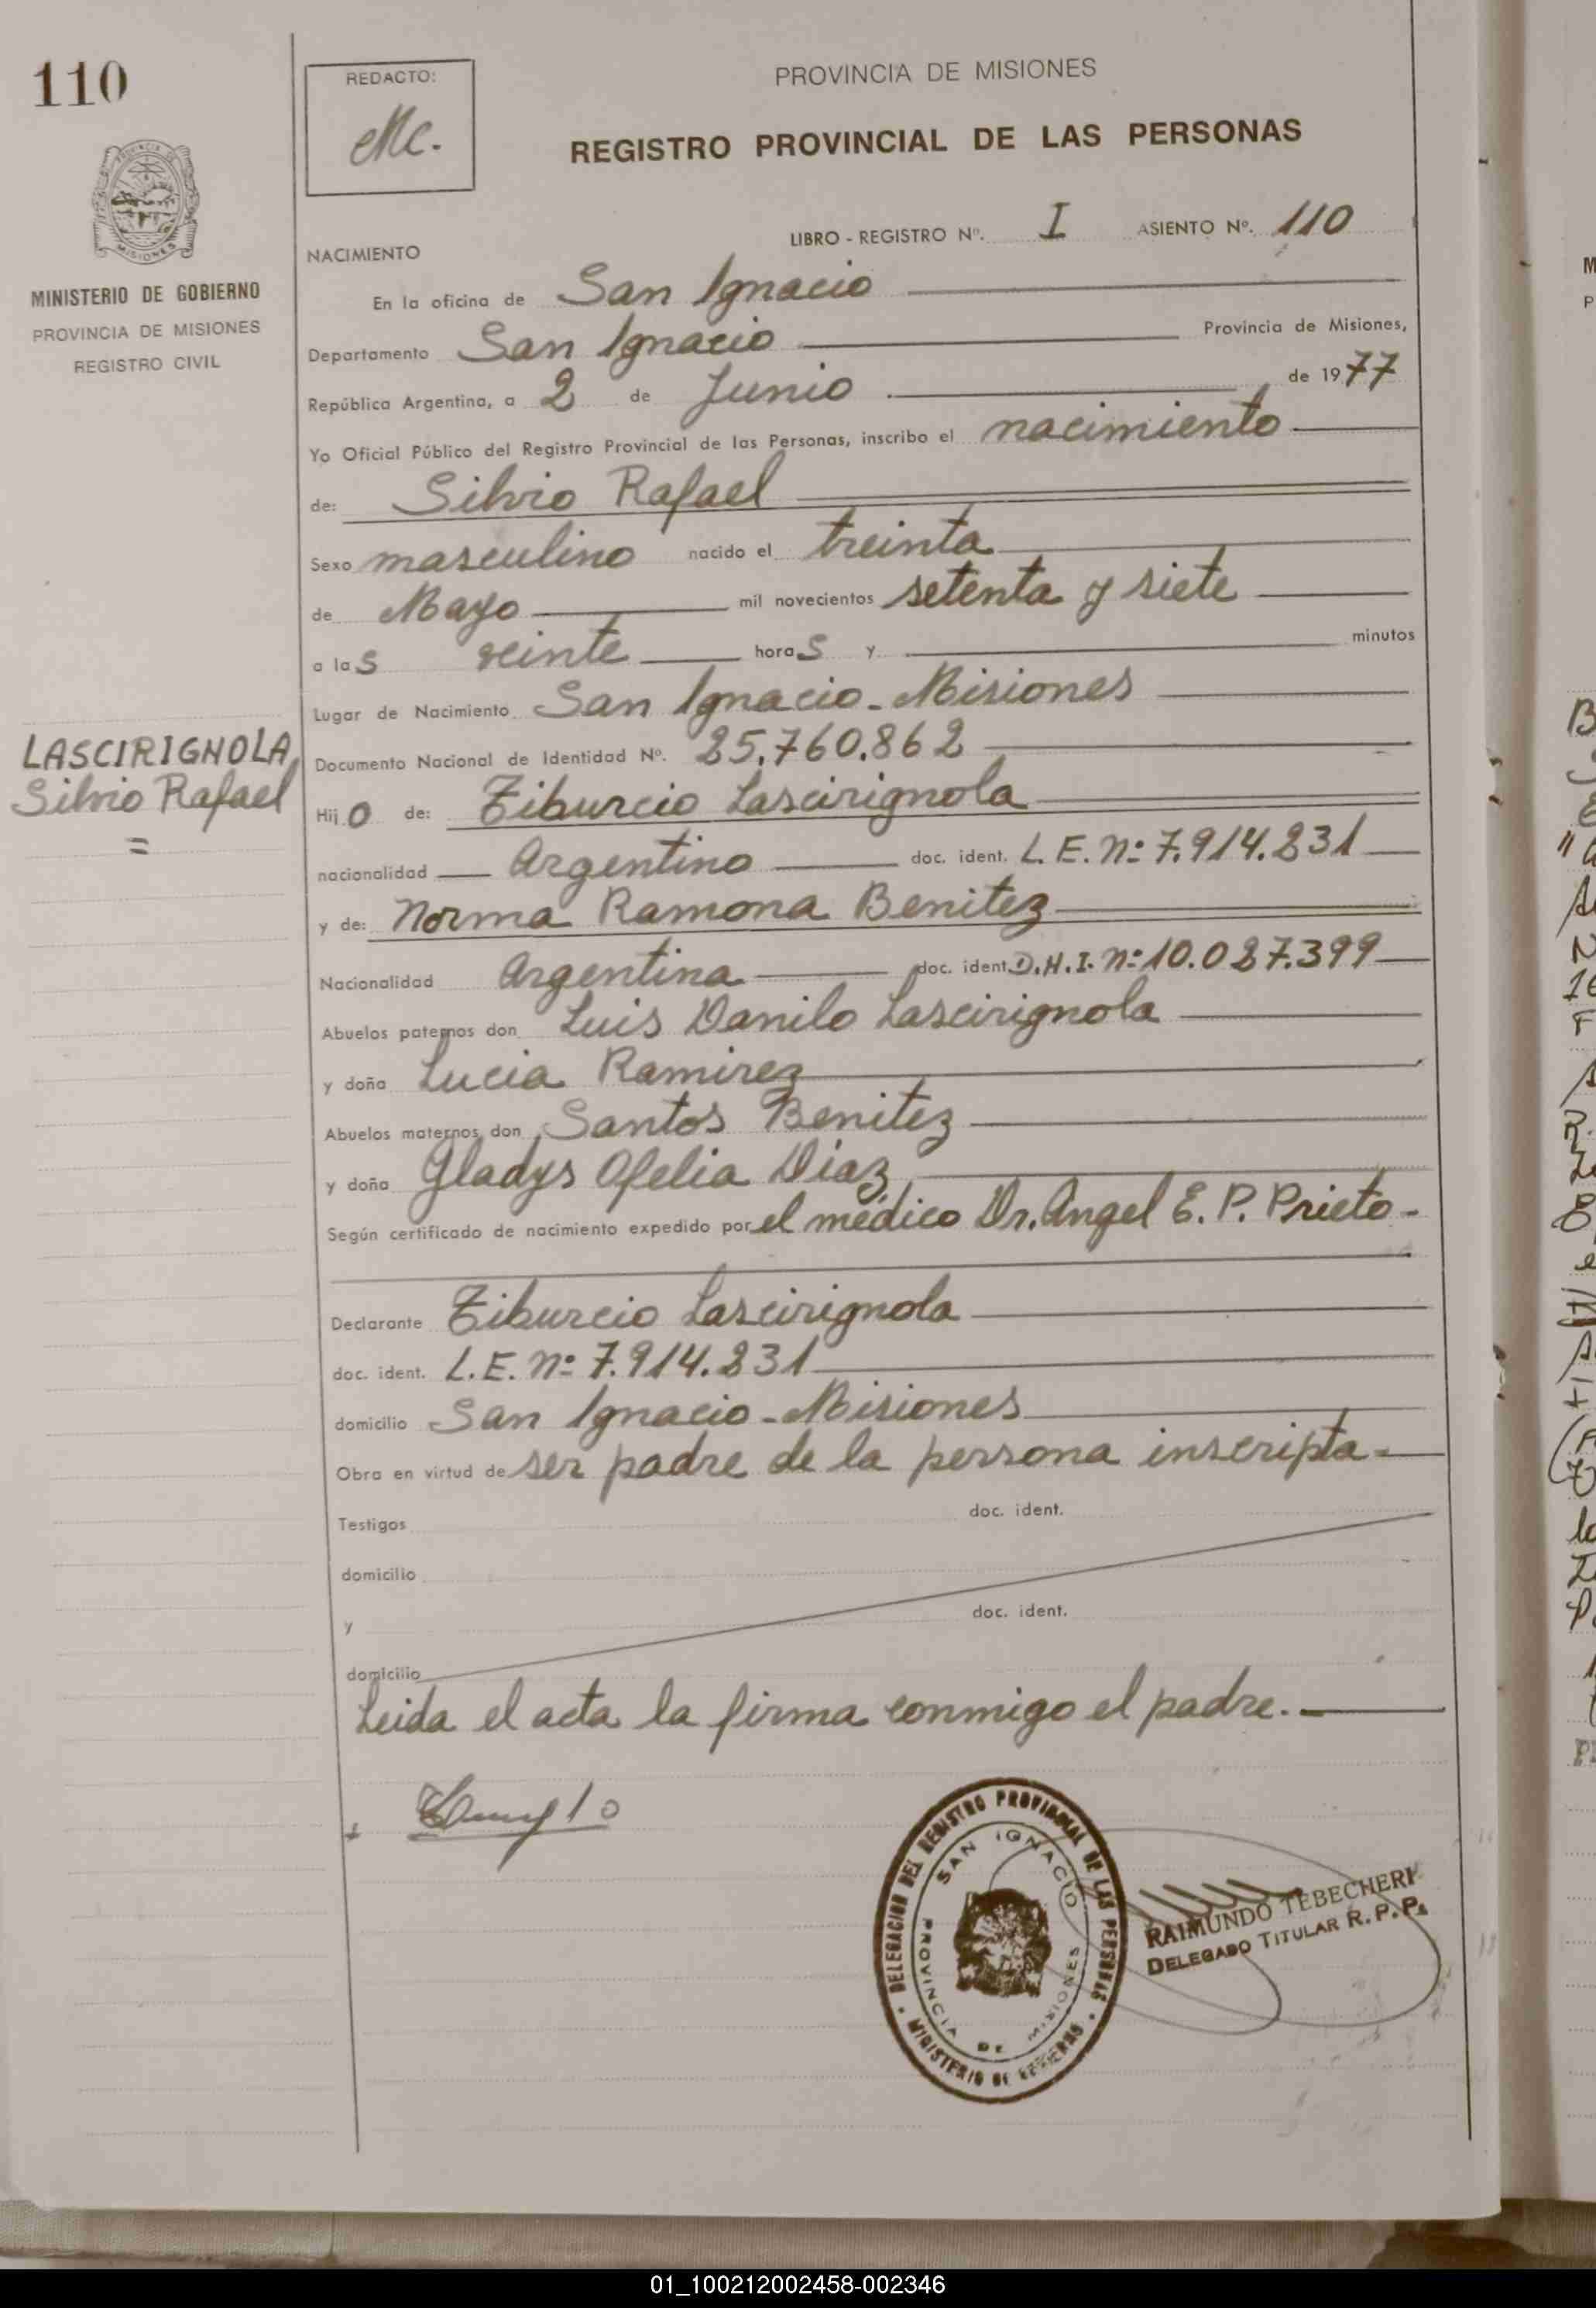 110
REDACTO:
Mc.
PROVINCIA DE MISIONES
REGISTRO PROVINCIAL DE LAS PERSONAS
LIBRO - REGISTRO Nº. I ASIENTO Nº. 110
MINISTERIO DE GOBIERNO
PROVINCIA DE MISIONES
REGISTRO CIVIL
NACIMIENTO
En la oficina de San Ignacio
Departamento San Ignacio Provincia de Misiones,
República Argentina, a 2 de Junio de 1977
Yo Oficial Público del Registro Provincial de las Personas, inscribo el nacimiento
de: Silvio Rafael
Sexo masculino nacido el treinta
de Mayo mil novecientos setenta y siete
a las veinte horas y minutos
Lugar de Nacimiento San Ignacio - Misiones
LASCIRIGNOLA,
Silvio Rafael
=
Documento Nacional de Identidad Nº. 25.760.862
Hijo de: Tiburcio Lascirignola
nacionalidad Argentino doc. ident. L.E. Nº 7.914.231
y de: Norma Ramona Benitez
Nacionalidad Argentina doc. ident. D.N.I. Nº 10.027.399
Abuelos paternos don Luis Danilo Lascirignola
y doña Lucia Ramirez
Abuelos maternos don Santos Benitez
y doña Gladys Ofelia Diaz
Según certificado de nacimiento expedido por el médico Dr. Angel E. P. Prieto -
Declarante Tiburcio Lascirignola
doc. ident. L.E. Nº 7.914.231
domicilio San Ignacio - Misiones
Obra en virtud de ser padre de la persona inscripta -
Testigos doc. ident.
domicilio
y doc. ident.
domicilio
Leida el acta la firma conmigo el padre. -
DELEGACION DEL REGISTRO PROVINCIAL DE LAS PERSONAS
MINISTERIO DE GOBIERNO
SAN IGNACIO
PROVINCIA DE MISIONES
RAIMUNDO TEBECHERI
DELEGADO TITULAR R. P. P.
01_100212002458-002346